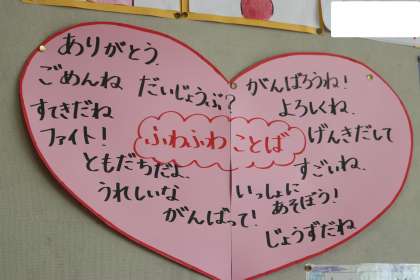 ありがとう.
ごめんね
だいじょうぶ?
がんばろうね!
よろしくね.
すてきだね
ファイト!
ふわふわことば
げんきだして
ともだちだよ.
すごいね.
うれしいな
いっしょに
あそぼう!
がんばって!
じょうずだね